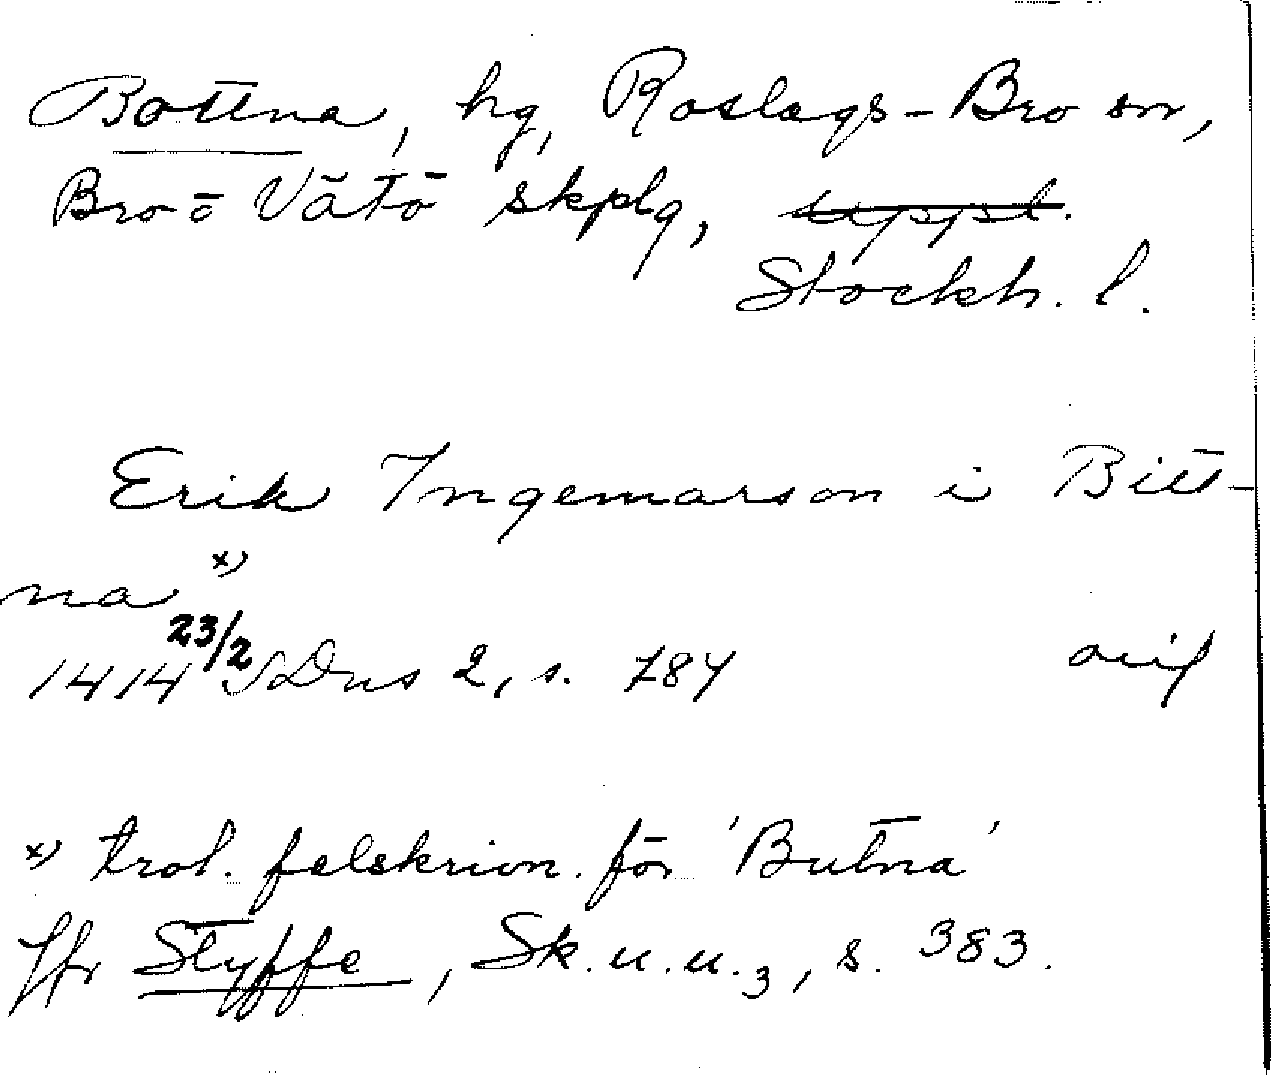 Bottna, hg, Roslags-Bro sn,
Bro o Vätö skplg, uppl.
Stockh. l.
Erik Ingemarson i Bitt-
na x)
1414 23/2 SDns 2, s. 784
x) trol. felskrivn. för 'Butna'
Jfr Styffe, Sk.u.u.3, s. 383.